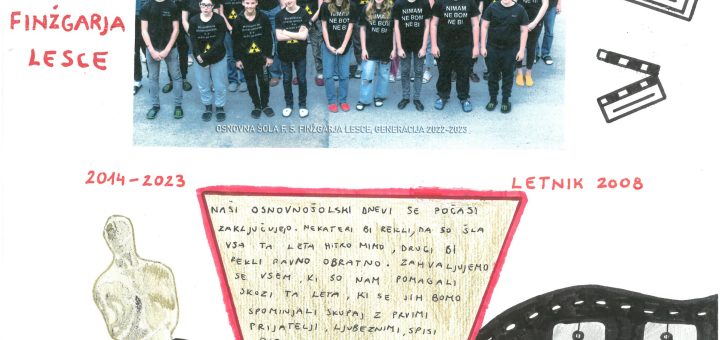 FINŽGARJA
LESCE
NIMAM
NE BOM
NE BI
NIMAM
NE BOM
NE BI
NIMAM
NE BOM
NE BI
OSNOVNA ŠOLA F. S. FINŽGARJA LESCE, GENERACIJA 2022-2023
2014-2023
LETNIK 2008
NAŠI OSNOVNOŠOLSKI DNEVI SE POČASI
ZAKLJUČUJEJO. NEKATERI BI REKLI, DA SO ŠLA
VSA TA LETA HITRO MIMO, DRUGI BI
REKLI RAVNO OBRATNO. ZAHVALJUJEMO
SE VSEM, KI SO NAM POMAGALI
SKOZI TA LETA, KI SE JIH BOMO
SPOMINJALI SKUPAJ Z PRVIMI
PRIJATELJI, LJUBEZNIMI, SPISI